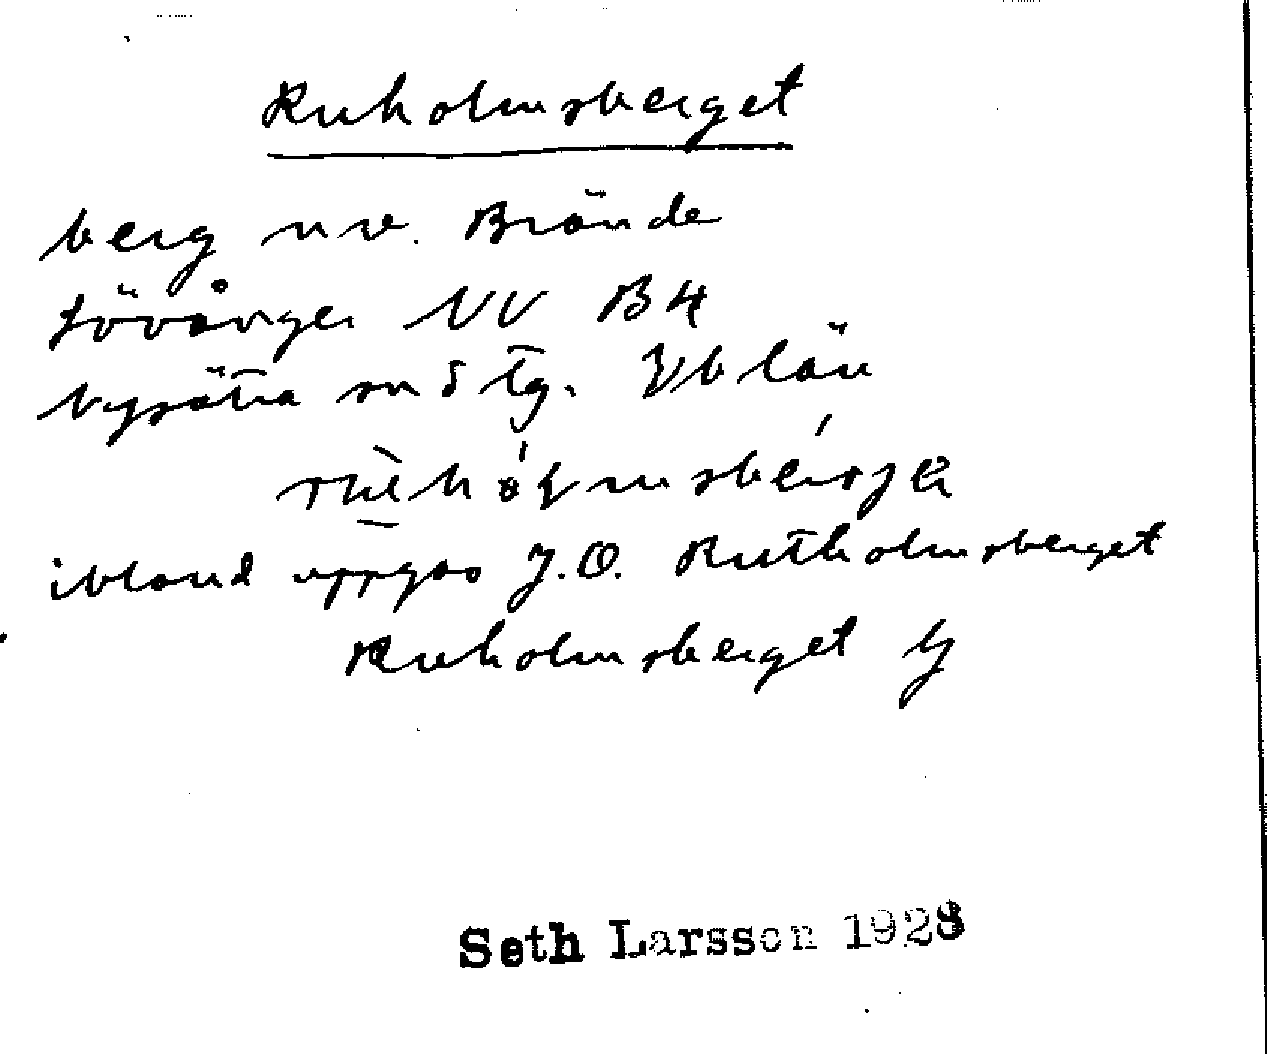 Ruholmsberget
berg nv. Brände
Lövånger NV B4
Nysätra sn s tg. Vb län
ibland uppges J.O. Rutholmsberget
Ruholmsberget
Seth Larsson 1928